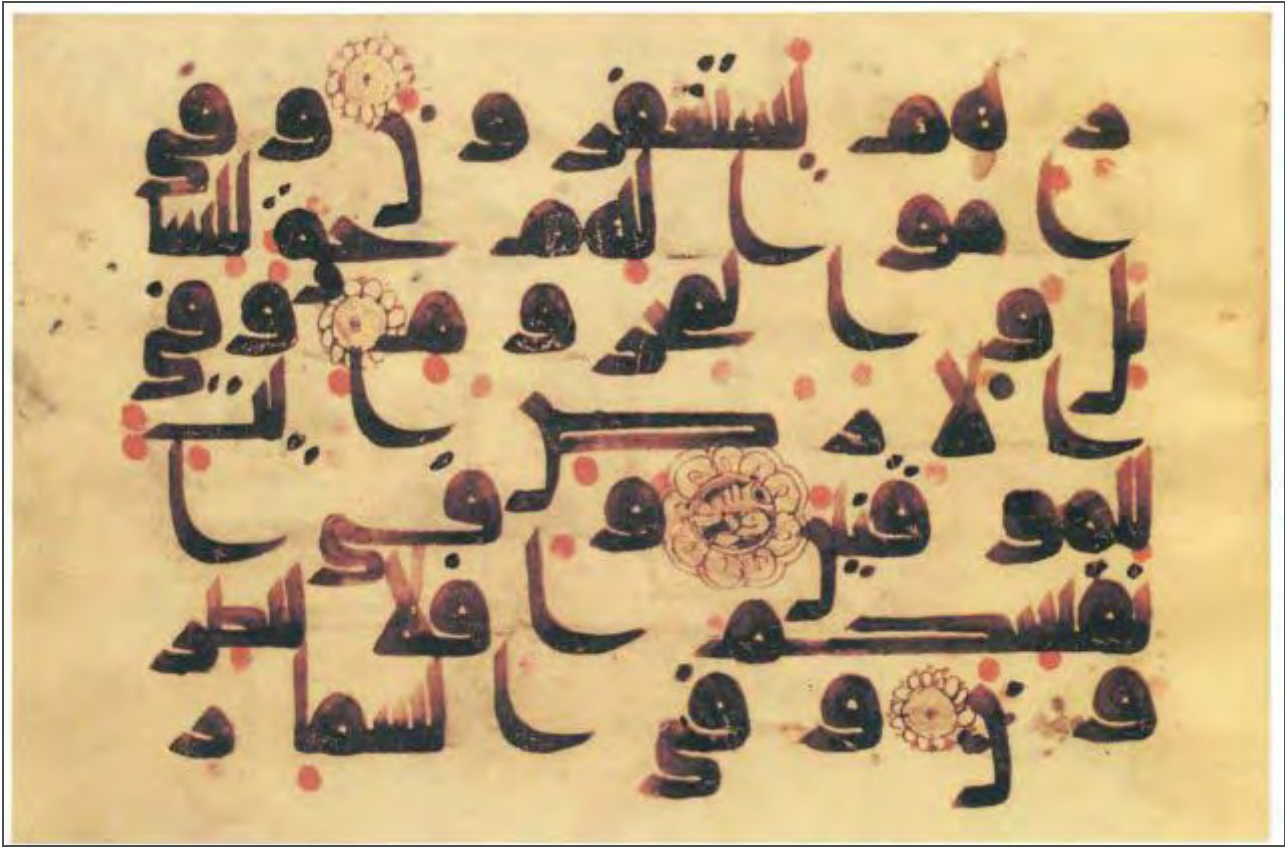 ر هم يستغفرون وفي
اموالهم حق للسا
يل والمحروم وفي
الارض ايت
للموقنين وفي ا
نفسكم افلا تبصرو
ن وفي السما ر